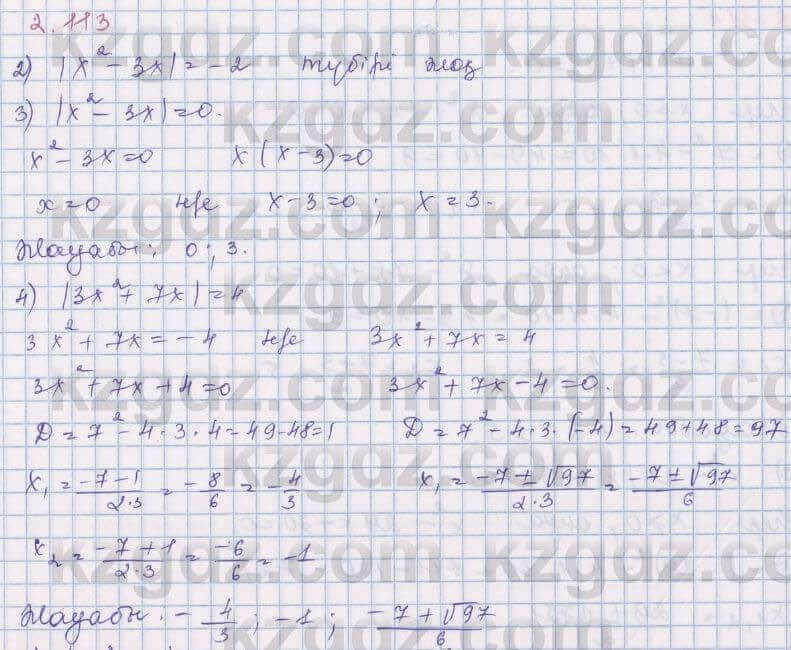 2.113
2) |x² - 3x| = -2 түбірі жоқ
3) |x² - 3x| = 0.
x² - 3x = 0 x(x-3) = 0
x = 0 не x-3 = 0; x = 3.
Жауабы: 0; 3.
4) |3x² + 7x| = 4
3x² + 7x = -4 не 3x² + 7x = 4
3x² + 7x + 4 = 0 3x² + 7x - 4 = 0.
D = 7² - 4·3·4 = 49-48 = 1 D = 7² - 4·3·(-4) = 49+48 = 97
x₁ = (-7-1)/(2·3) = -8/6 = -4/3 x₁ = (-7±√97)/(2·3) = (-7±√97)/6
x₂ = (-7+1)/(2·3) = -6/6 = -1
Жауабы: -4/3; -1; (-7+√97)/6
kzgdz.com